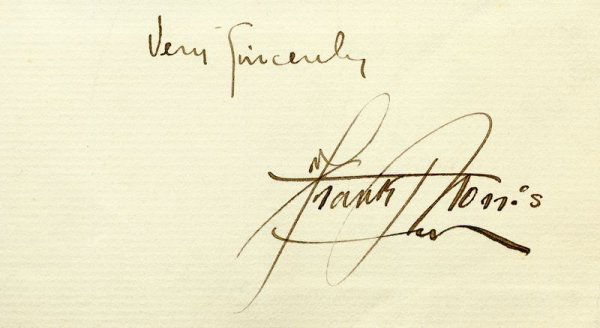 Very Sincerely
Frank Norris